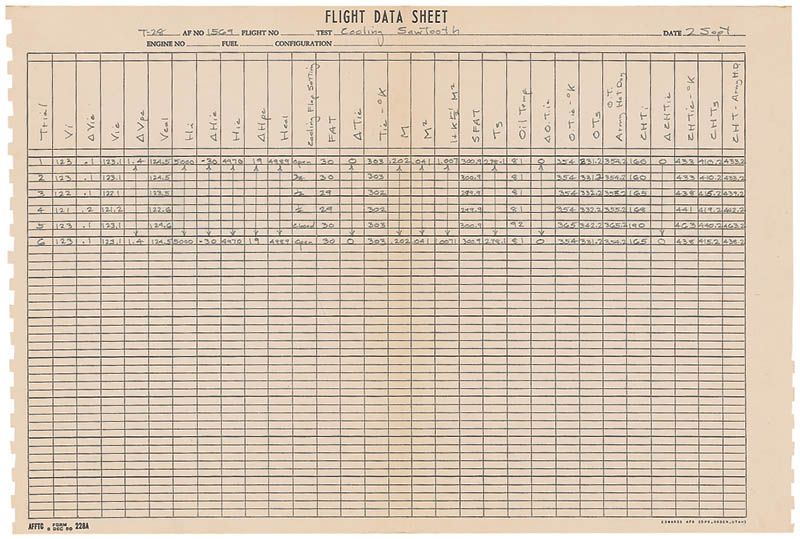 FLIGHT DATA SHEET
T-28 AF NO 1569 FLIGHT NO TEST Cooling Sawtooth DATE 2 Sept
ENGINE NO FUEL CONFIGURATION
Trial Vi ΔVic Vic ΔVpc Vcal Hi ΔHic Hic ΔHpc Hcal Cooling Flap Setting FAT ΔTic Tic-°K M M² SFAT Ts Oil Temp ΔO.T.ic O.Tic-°K OTs O.T. Army Hot Day CHTi ΔCHTic CHTic-°K CHTs CHT-Army H.D.
1 123 .1 123.1 1.4 124.5 5000 -30 4970 19 4989 Open 30 0 303 .202 .041 1.007 300.9 278.1 81 0 354 331.2 354.2 160 0 433 410.2 433.2
2 123 .1 123.1 124.5 30 303 300.9 81 354 331.2 354.2 160 433 410.2 433.2
3 122 .1 122.1 123.5 29 302 299.9 81 354 165 438
4 121 .2 121.2 122.6 29 302 299.9 81 354 168 441 419.2 442.2
5 123 .1 123.1 124.6 Closed 30 303 300.9 92 365 342.2 365.2 190 463 440.2 463.2
6 123 .1 123.1 1.4 124.5 5000 -30 4970 19 4989 Open 30 0 303 .202 .041 1.007 300.9 278.1 81 0 354 331.2 354.2 165 0 438 415.2 438.2
AFFTC FORM 6 DEC 50 228A
EDWARDS AFB